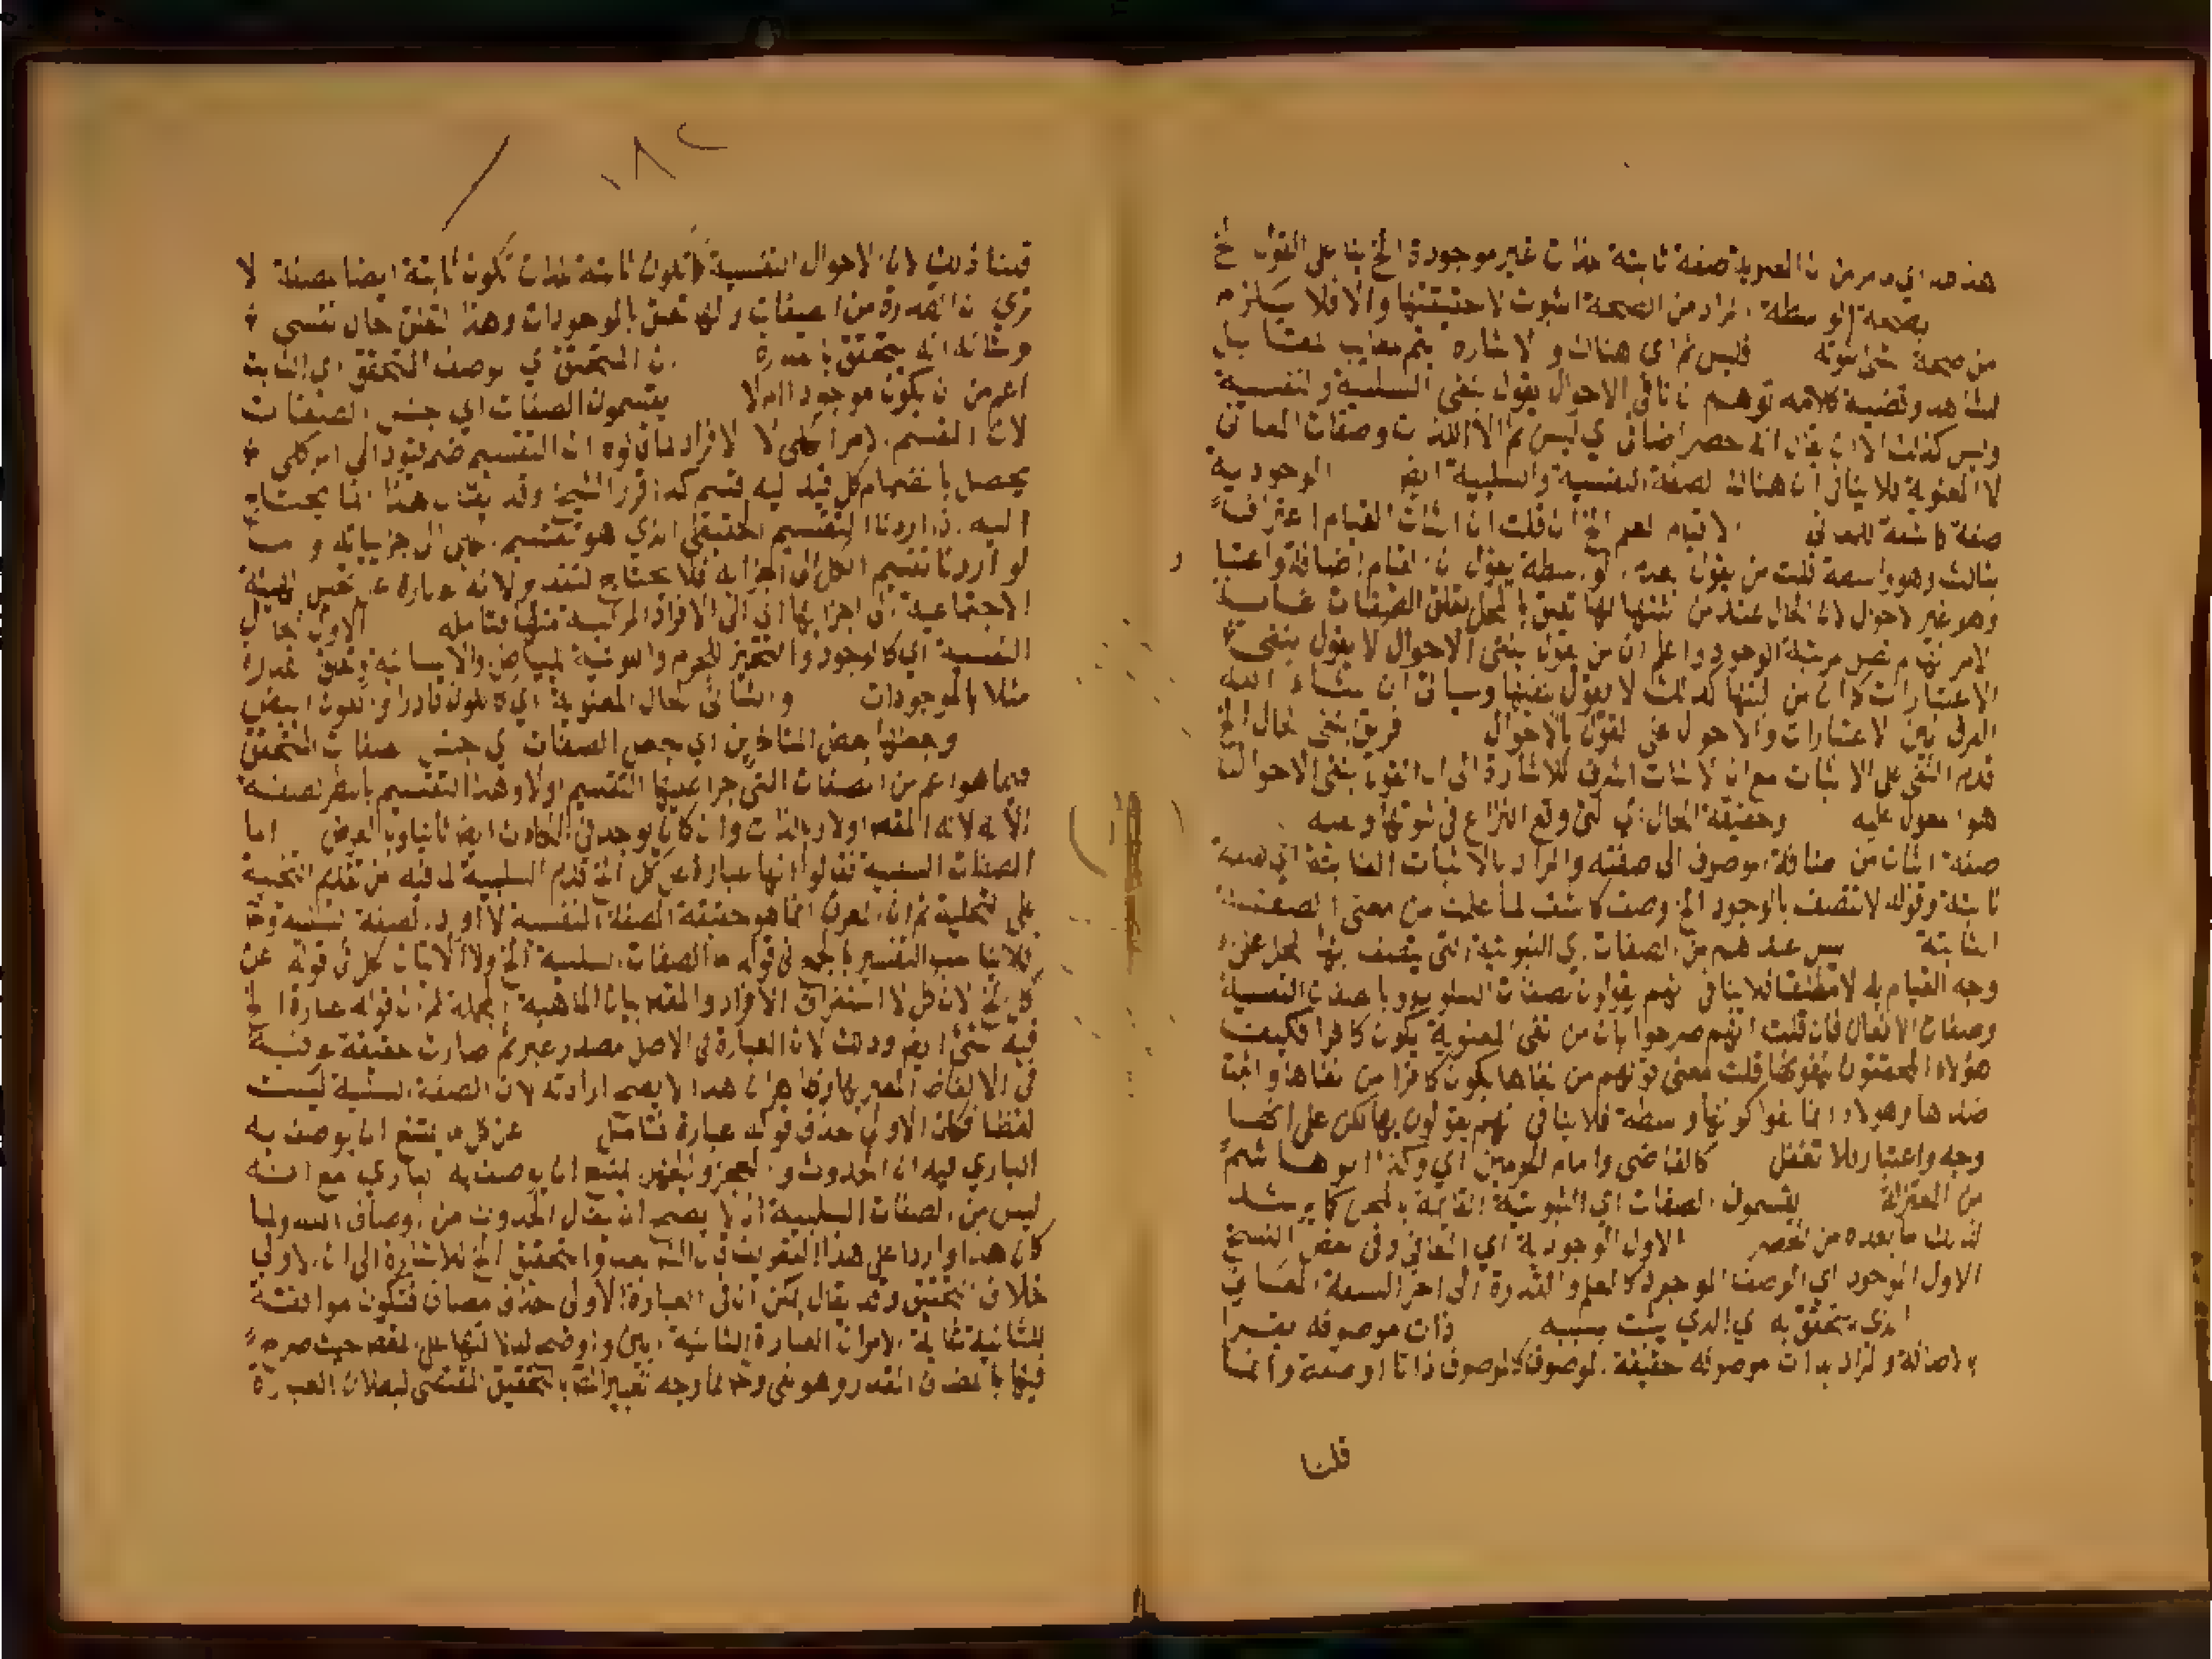 هذه اي ما مر من ان العبرية صفة ثابتة لذات غير موجودة الخ بنا على القول الخ
بصحة الواسطة المراد من الصحة الثبوت لا حقيقتها والا فلا يلزم
من صحة شئ ثبوته فليس ثم اي هناك والاشارة بثم
وقضية كلامه توهم ان نافي الاحوال يقول بنفي السلبية والنفسية
وليس كذلك الا ان يقال انه حصر اضافي اي ليس ثم الا الذات وصفات المعاني
لا المعنوية فلا ينافي ان هناك الصفة النفسية والسلبية ايض الوجودية
صفة كاشفة للمعاني الا قيام العلم الخ ان قلت ان اثبات القيام اعتراف
بثالث وهو واسطة قلت من يقول بعدم الواسطة يقول ان القيام اضافة واعتبار
وهو غير الاحوال لان الحال عند من يثبتها لها تعلق بالمحل كتعلق الصفات غاية
الامر انها لم تصل مرتبة الوجود واعلم ان من يقول بنفي الاحوال لا يقول بنفي
الاعتبارات كما ان من يثبتها كذلك لا يقول بنفيها وسياتي ان شاء الله
الفرق بين الاعتبارات والاحوال على القول بالاحوال فريق بنفي الحال الخ
قدم النفي على الاثبات مع ان الاثبات اشرف للاشارة الى ان القول بنفي الاحوال
هو المعول عليه وحقيقة الحال اي التي وقع النزاع في ثبوتها وعدمه
صفة اثبات من اضافة الموصوف الى صفته والمراد بالاثبات الثابتة اي صفة
ثابتة وقوله لا تتصف بالوجود الخ وصف كاشف لما علمت من معنى الصفة
الثابتة ليس عندهم من الصفات اي الثبوتية التي يتصف بها المحل على
وجه القيام به لا مطلقا فلا ينافي انهم يقولون بصفات السلوب وبالصفات النفسية
وصفات الافعال فان قلت انهم صرحوا بان من نفى المعنوية يكون كافرا فكيف
هؤلاء المحققون ينفونها قلت معنى قولهم من نفاها يكون كافرا من نفاها واثبت
ضدها وهؤلاء انما نفوا كونها واسطة فلا ينافي انهم يقولون بها لكن على انها
وجه واعتبار فلا تغفل كالقاضي وامام الحرمين اي وكذا ابو هاشم
من المعتزلة يقسمون الصفات اي الثبوتية القائمة بالمحل كما يرشد
لذلك ما بعده من الحصر الاول الوجودية اي المعاني وفي بعض النسخ
الاول الموجود اي الوصف الموجود كالعلم والقدرة الى اخر السبعة المعاني
الذي يتحقق به اي الذي يثبت بسببه ذات موصوفه
بالاصالة والمراد بذات موصوفه حقيقة الموصوف كان الموصوف ذاتا او صفة وانما
قلنا
قلنا ذلك لان الاحوال النفسية كما تكون ثابتة للذات تكون ثابتة ايضا لصفة الا
ترى ان القدرة من الصفات ولها تعلق بالموجودات وهذا التعلق حال نفسي
وشانه انه يتحقق بالقدرة ان المتحقق اي بوصف التحقق اي الثابت
اعم من ان يكون موجودا ام لا يقسمون الصفات اي جنس الصفات
لان المقسم امرا كلي لا الافراد فان قوله ان التقسيم ضم قيود الى امر كلي
يحصل بانضمام كل قيد اليه قسم كذا قرر الشيخ وقد يقال هذا انما يحتاج
اليه اذا اردنا التقسيم الحقيقي الذي هو تقسيم الكلي الى جزيياته واما
لو اردنا تقسيم الكل الى اجزائه فلا يحتاج
الاجتماعية الى اجزايها اي الى الافراد المركبة منها فتامله الاول الحال
النفسية اي كالوجود والتحيز للجرم واللونية للبياض والانسانية وتعلق القدرة
مثلا بالموجودات والثاني الحال المعنوية اي ككون قادرا وككون ابيض
وجعلها بعض المتاخرين اي بعض الصفات اي جنس صفات المتحقق
فيما هو اعم من الصفات التي جرا عليها التقسيم اولا وهذا التقسيم بالنظر لصفة
الاله لانه المقصم اولا وبالذات وان كان يوجد في الحادث ايض ثانيا وبالعرض اما
الصفات السلبية فقالوا انها عبارة عن كل الخ قدم السلبية لما فيه من تقديم التخلية
على التحلية ثم ان المعرف انما هو حقيقة الصفة النفسية لا افراد الصفة
فلا يناسب التفسير بالجمع في قوله اما الصفات السلبية الخ ولا الاتيان بكل في قوله عن
كل الخ لان كل لاستغراق الافراد والمقصم بيان الماهية بالجملة ثم ان قوله عبارة الخ
فيه شئ ايض وذلك لان العبارة في الاصل مصدر عبر ثم صارت حقيقة عرفية
في الالفاظ المعبر بها وظاهر ان هذا لا يصح ارادته لان الصفة السلبية ليست
لفظا فكان الاولى حذف قوله عبارة فتامل عن كل ما يمتنع ان يوصف به
الباري فيه ان الحدوث والعجز ونقيض يمتنع ان يوصف به الباري مع انه
ليس من الصفات السلبية اذ لا يصح ان يقال الحدوث من اوصاف الله ولما
كان هذا واردا على هذا التعريف قال الشم بعد والتحقيق الخ للاشارة الى ان الاولى
خلاف التحقيق وقد يقال يمكن ان في العبارة الاولى حذف مضاف فتكون موافقة
للثانية غاية الامر ان العبارة الثانية ابين واوضح لدلالتها على المقصم حيث صرح
فيها بالمضاف المقدر وهو نفي وح فما وجه تعبير الشم بالتحقيق المقتضي لبطلان العبارة